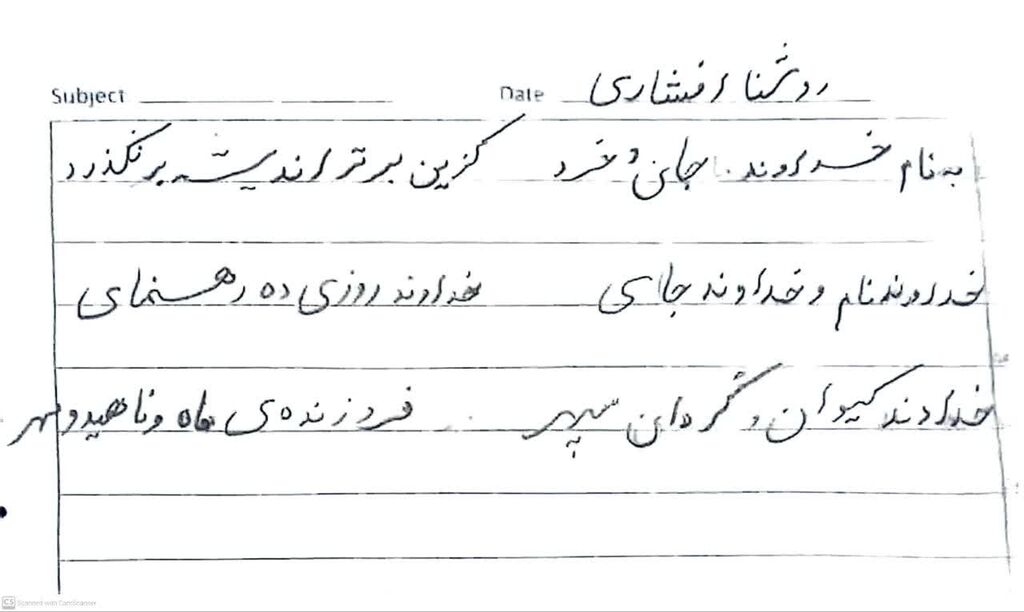 Subject Date روشنا افشاری
به نام خداوند جان و خرد کزین برتر اندیشه برنگذرد
خداوند نام و خداوند جای خداوند روزی ده رهنمای
خداوند کیوان و گردان سپهر فروزنده‌ی ماه و ناهید و مهر
CS Scanned with CamScanner